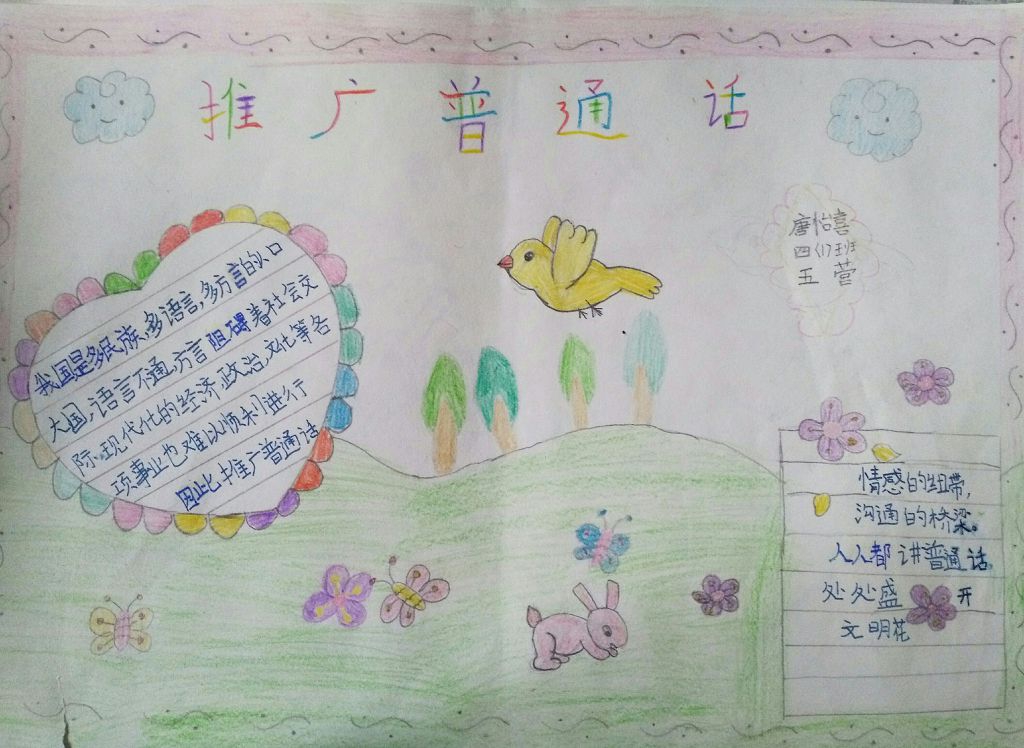 推广普通话
唐怡喜
四(1)班
五营
我国是多民族,多语言,多方言的人口
大国,语言不通,方言阻碍着社会交
际.现代化的经济,政治,文化等各
项事业也难以顺利进行
因此推广普通话
情感的纽带,
沟通的桥梁。
人人都讲普通话
处处盛开
文明花